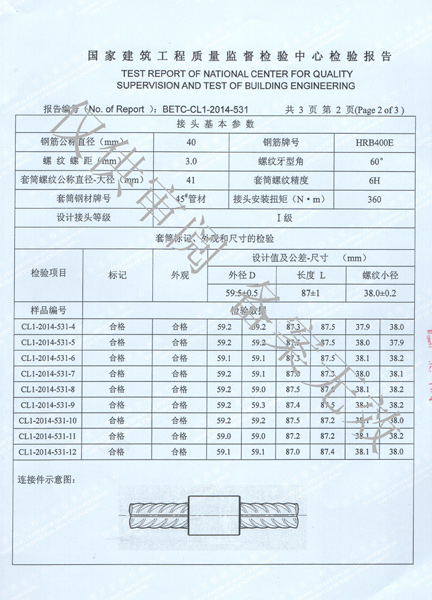 国家建筑工程质量监督检验中心检验报告
TEST REPORT OF NATIONAL CENTER FOR QUALITY
SUPERVISION AND TEST OF BUILDING ENGINEERING
报告编号（No. of Report）：BETC-CL1-2014-531 共 3 页 第 2 页(Page 2 of 3 )
接头基本参数
钢筋公称直径（mm） 40 钢筋牌号 HRB400E
螺纹螺距（mm） 3.0 螺纹牙型角 60°
套筒螺纹公称直径-大径（mm） 41 套筒螺纹精度 6H
套筒钢材牌号 45#管材 接头安装扭矩（N·m） 360
设计接头等级 I 级
套筒标记、外观和尺寸的检验
检验项目 标记 外观 设计值及公差-尺寸 （mm）
外径 D 长度 L 螺纹小径
59.5±0.5 87±1 38.0±0.2
样品编号 检验数据
CL1-2014-531-4 合格 合格 59.2 59.2 87.3 87.5 37.9 38.0
CL1-2014-531-5 合格 合格 59.2 59.2 87.5 38.0 37.9
CL1-2014-531-6 合格 合格 59.1 59.1 87.3 87.5 38.1 38.2
CL1-2014-531-7 合格 合格 59.2 59.1 87.3 38.0 38.1
CL1-2014-531-8 合格 合格 59.2 59.0 87.5 38.1 38.2
CL1-2014-531-9 合格 合格 59.2 59.3 87.4 87.5 38.1 38.2
CL1-2014-531-10 合格 合格 59.2 59.2 87.5 87.2 38.1 38.0
CL1-2014-531-11 合格 合格 59.0 59.2 87.2 87.2 38.1 38.2
CL1-2014-531-12 合格 合格 59.1 59.1 87.0 87.4 38.1 38.0
连接件示意图：
仅供审阅 备案无效